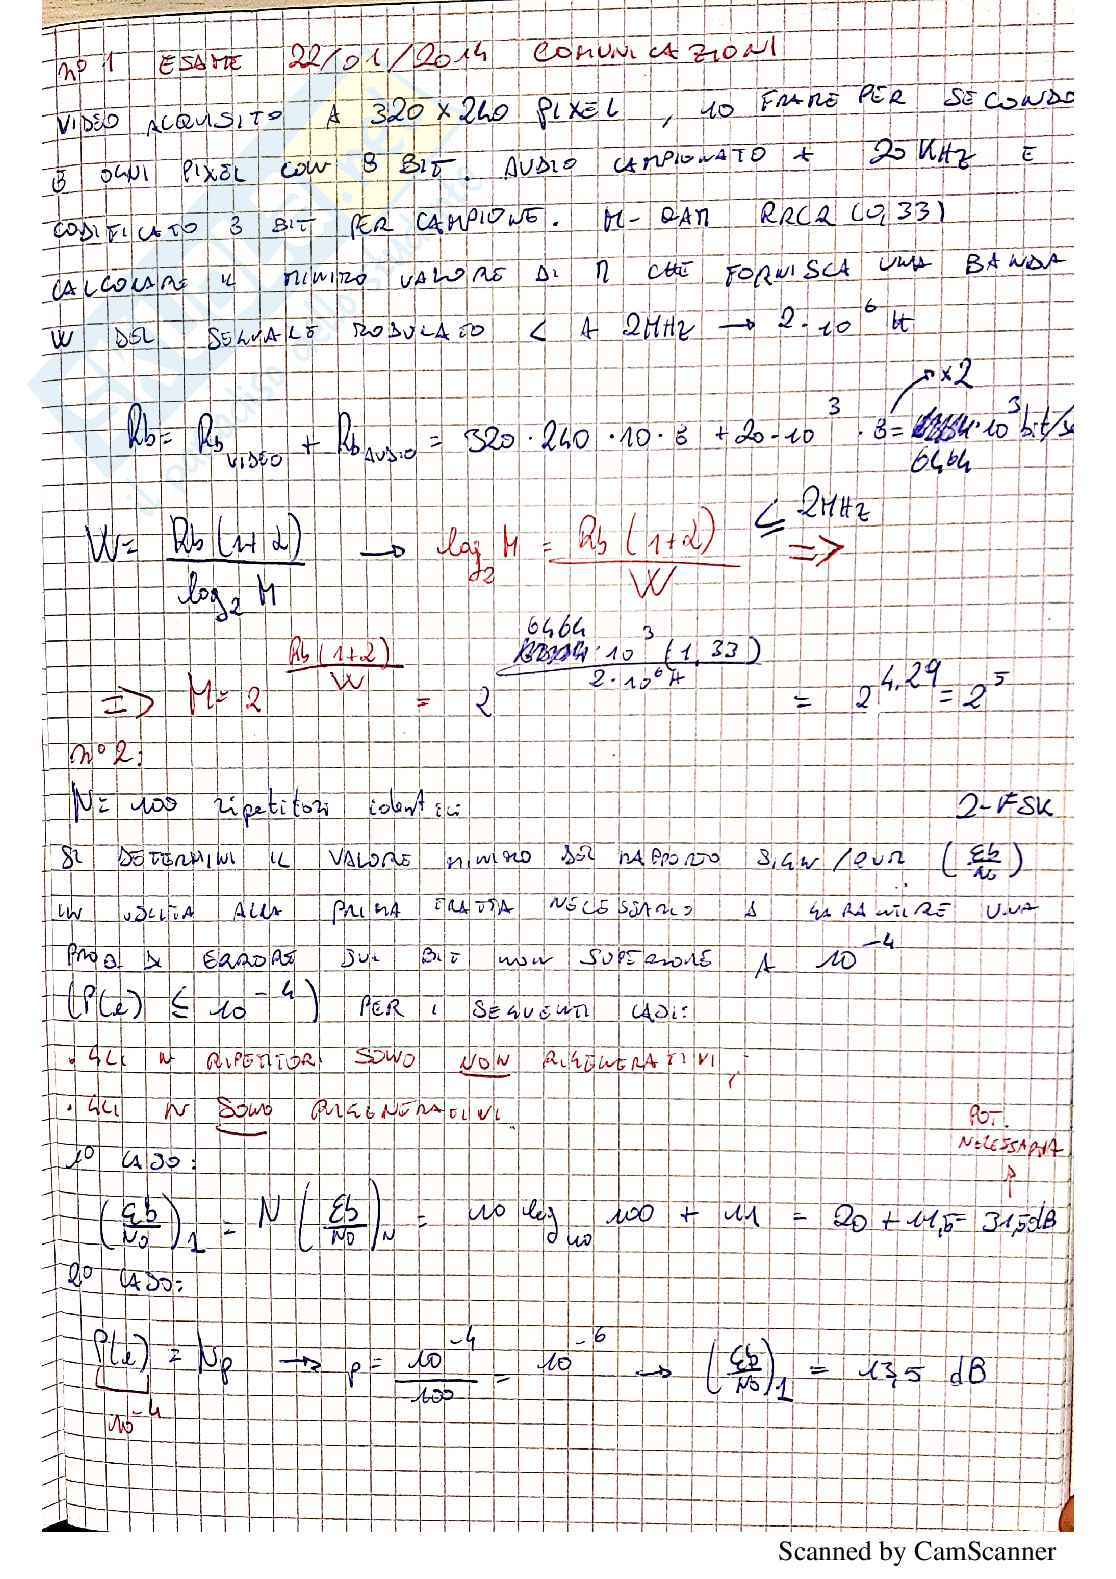 n° 1 ESAME 22/01/2014 COMUNICAZIONI
VIDEO ACQUISITO A 320 x 240 PIXEL, 10 FRAME PER SECONDO
E OGNI PIXEL CON 8 BIT. AUDIO CAMPIONATO A 20 KHz E
CODIFICATO 8 BIT PER CAMPIONE. M-QAM RRCR (0,33)
CALCOLARE IL MINIMO VALORE DI M CHE FORNISCA UNA BANDA
W DEL SEGNALE MODULATO < A 2MHz → 2·10^6 Hz
x2
Rb = Rb VIDEO + Rb AUDIO = 320·240·10·8 + 20·10^3·8 = 6464·10^3 bit/s
W = Rb(1+α)/log2 M → log2 M = Rb(1+α)/W ≤ 2MHz ⇒
⇒ M = 2^(Rb(1+α)/W) = 2^(6464·10^3(1,33)/2·10^6) = 2^4,29 = 2^5
n° 2:
N = 100 ripetitori identici 2-FSK
SI DETERMINI IL VALORE MINIMO DEL RAPPORTO SIGN/RUM (Eb/N0)
IN USCITA ALLA PRIMA TRATTA NECESSARIO A GARANTIRE UNA
PROB DI ERRORE SUL BIT NON SUPERIORE A 10^-4
(P(e) ≤ 10^-4) PER I SEGUENTI CASI:
· GLI N RIPETITORI SONO NON RIGENERATIVI;
· GLI N SONO RIGENERATIVI.
POT. NECESSARIA
1° CASO:
(Eb/N0)1 = N (Eb/N0)N = 10 log10 100 + 11 = 20 + 11,5 = 31,5 dB
2° CASO:
P(e) = Np → p = 10^-4/100 = 10^-6 → (Eb/N0)1 = 13,5 dB
10^-4
Scanned by CamScanner